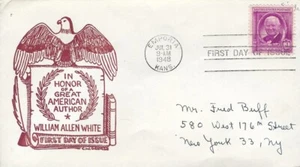 IN
HONOR
OF A
GREAT
AMERICAN
AUTHOR
WILLIAM ALLEN WHITE
FIRST DAY OF ISSUE
EMPORIA
JUL 31
9-AM
1948
KANS.
FIRST DAY OF ISSUE
Mr. Fred Buff
580 West 176th Street
New York 33, NY